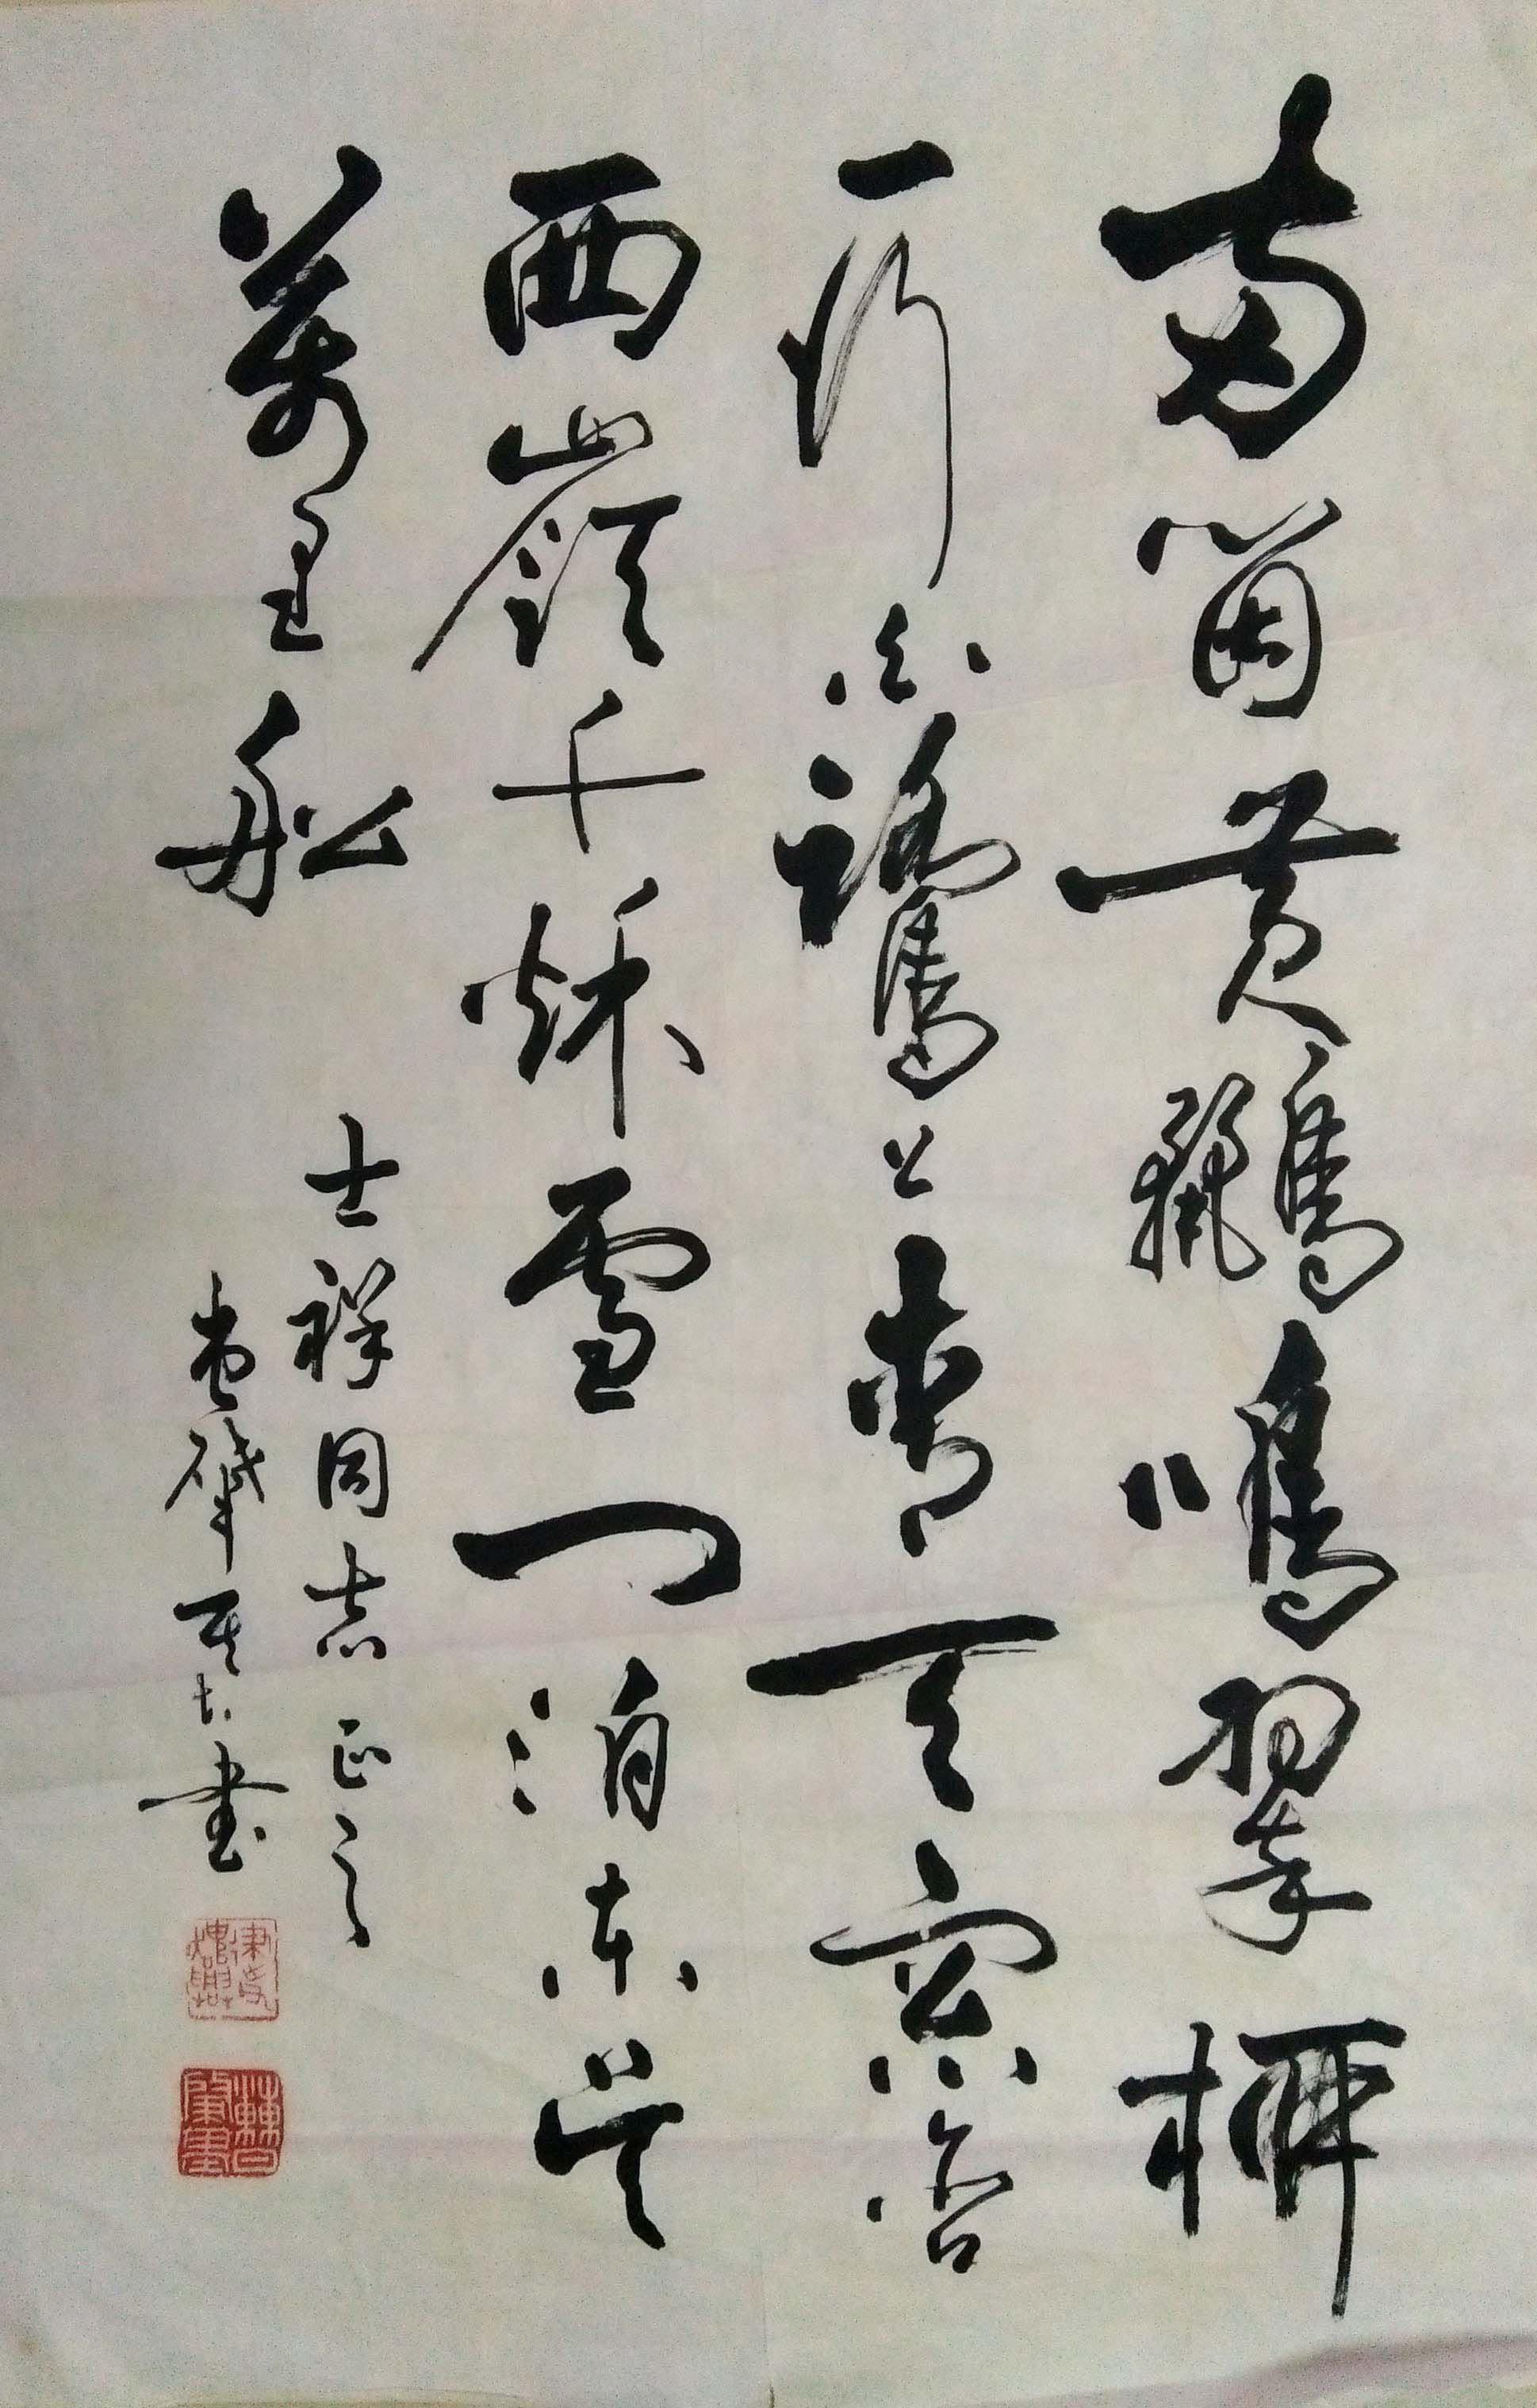 两箇黄鸝鳴翠柳
一行白鷺上青天窗含
西嶺千秋雪門泊東吳
萬里船
士祥同志正之
肇
書